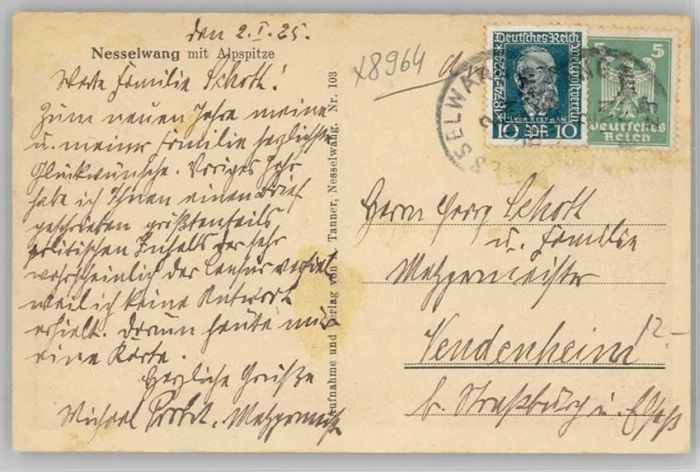 den 2.I.25.
Nesselwang mit Alpspitze
Werte Familie Schott!
Zum neuen Jahre meine
u. meiner Familie herzlichste
Glückwünsche. Voriges Jahr
habe ich Ihnen einen Brief
geschrieben größtenteils
politischen Inhalts der sehr
wahrscheinlich der Censur verfiel
weil ich keine Antwort
erhielt. Darum heute nur
eine Karte.
Herzliche Grüße
Michael Metzgermeister
Aufnahme und Verlag von A. Tanner, Nesselwang. Nr. 103
x8964
Deutsches Reich
1874-1924
Weltpostverein
H. von Stephan
10 Pf 10
5
Deutsches
Reich
NESSELWANG
Herrn Georg Schott
u. Familie
Metzgermeister
Vendenheim
12-
b. Straßburg i. Elsaß